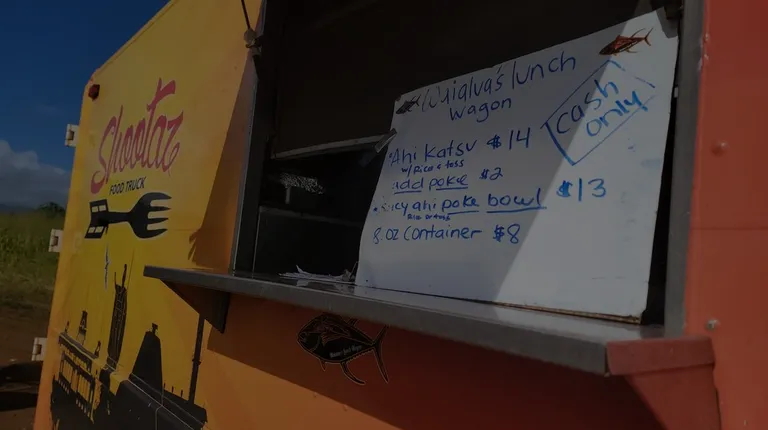 Shootaz
FOOD TRUCK
Waialua's lunch
wagon
cash
only
• Ahi Katsu $14
w/ Rice & toss
add poke $2
• Spicy ahi poke bowl $13
8. oz Container $8